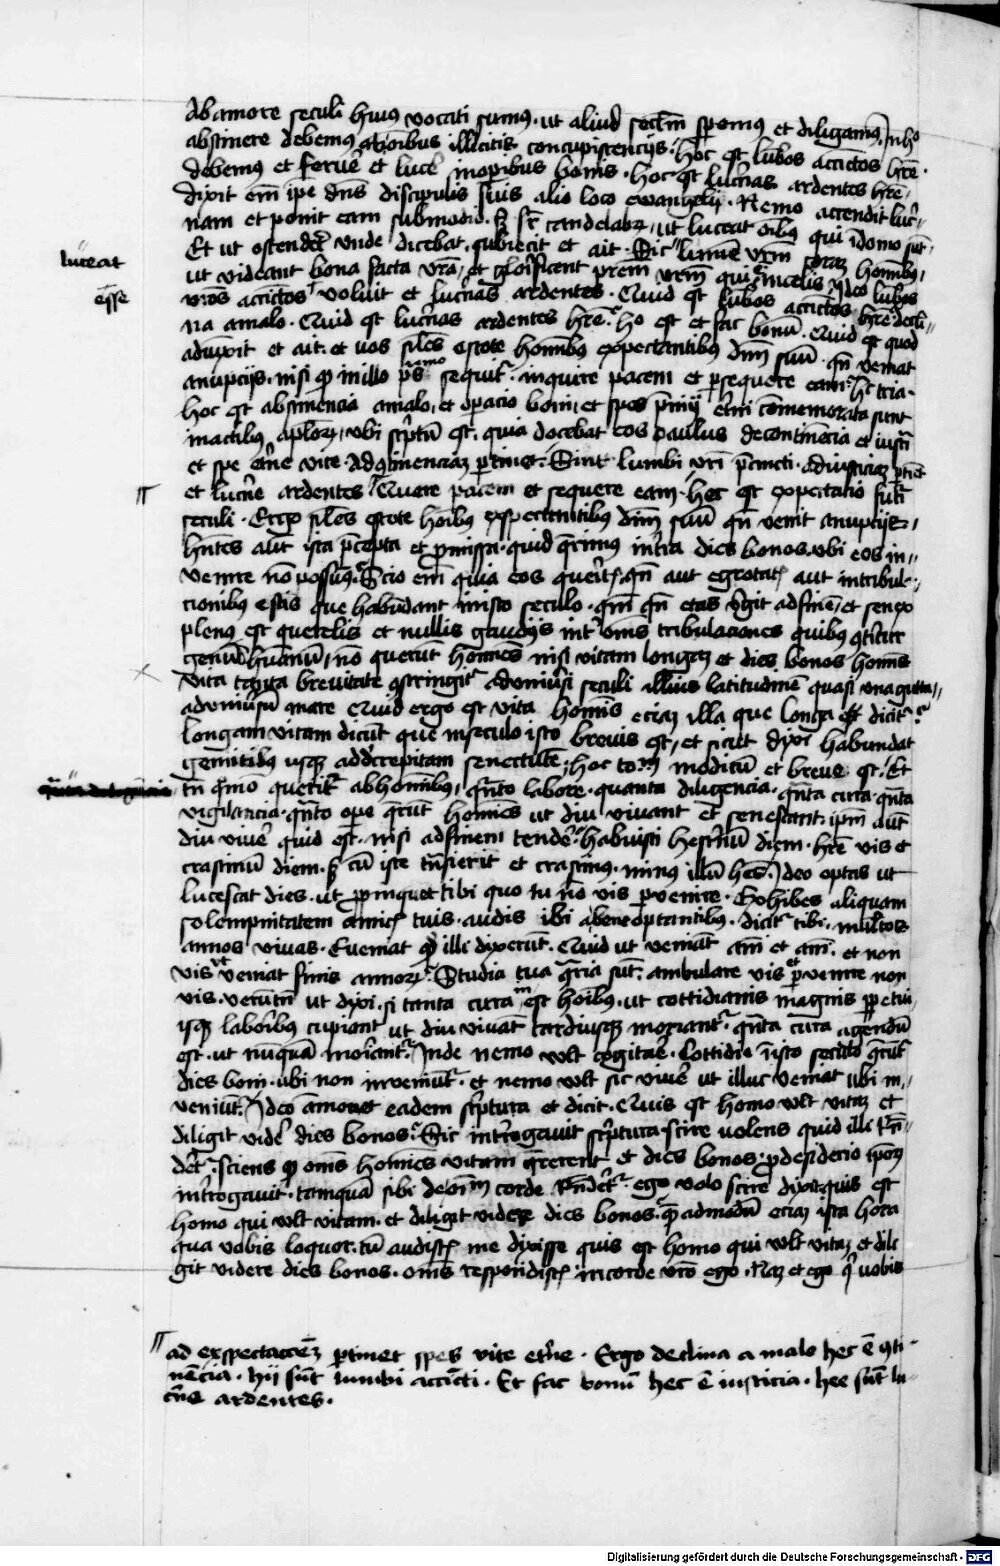 Ab amore seculi huius vocati sumus · ut aliud seclm speremus et diligamus · In ho
abstinere debemus ab oībus illicitis concupiscencijs · hoc est lūbos accīctos hrē ·
debemus et fervē et lucē in operibus bonis · hoc est lucernas ardentes hrē ·
dixit em̄ ipe dns discipulis suis alio loco ewangelij · Nemo accendit lucer-
nam et ponit eam sub modio · sed sr candelabrz · ut luceat oībus qui ī domo sūt ·
Et ut ostenderet unde dicebat · subiecit et ait · Sic lumē vrm coraz hominibus
luceat
ut videant bona facta vrā · et glorificent prem vrm qui in celis Ideo lūbos
esse
vros accīctos voluit et lucernas ardentes · Quid est lūbos accīctos hrē decli-
na a malo · Quid est lucernas ardentes hrē · ho est et fac bonū · Quid est quod
aduxit et ait · et vos siles estote hominibus expectantibus dnm suū · qn veniat
a nupcijs · nisi qd in illo psalmo sequitur · inquire pacem et persequere eam · hec tria ·
hoc est abstinencia a malo · et operacio boni · et spes premij eterni comemorata sunt
in actibus aplorz · ubi scriptu est · quia docebat eos paulus de continēcia et iusticia
et spe eterne vite · Ad continenciaz pertinet · Sint lumbi vri precincti · ad iusticiaz ptinet
et lucerne ardentes · Quere pacem et sequere eam · hec est expectacio futuri
seculi · Ergo siles estote hoibus expectantibus dnm suū qn venit a nupcijs ·
hntes aut ista precepta et promissa · quid querimus in terra dies bonos · ubi eos in-
venire nō possumus · Scio em quia eos queritis · qn aut egrotatis aut in tribula-
cionibus estis que habundant in isto seculo · qm qn etas vergit ad finē · et senex
plenus est querelis et nullis gaudijs inter omes tribulaciones quibus conteritur
genus humanū · nō querunt homines nisi vitam longaz et dies bonos hominis
vita tanta brevitate constringitur ad universi seculi illius latitudinē quasi una gutta
ad universum mare Quid ergo est vita hominis eciaz illa que longa est dicitur
longam vitam dicūt que in seculo isto brevis est · et sicut dixi habundat
gemitibus usqz ad decrepitam senectutē · hoc totum modicū et breve est · Et
tn quo queritur ab hominibus · quanto labore · quanta diligencia · quanta cura · quanta
vigilancia · quanto ope querunt homines ut diu vivant et senescant · ipm aut
diu vivere quid est · nisi ad finem tendere · habuisti hesternū diem · hrē vis et
crastinū diem · sed cū iste transierit et crastinus · minus illū hes · Ideo optas ut
lucescat dies · ut propinquet tibi quo tu nō vis pervenire · Exhibes aliquam
solempnitatem amicis tuis · audis ibi a bene optantibus · dicitur tibi · multos
annos vivas · Eveniat qd illi dixerunt · Quid ut veniāt ani et ani · et non
vis ut veniat finis annorz · Studia tua contraria sūt · ambulare vis et pervenire non
vis · verūtn ut dixi · si tanta cura est hoibus · ut cottidianis magnis perpetu-
isqz laboribus cupiant ut diu vivant tardiusqz moriantur · quanta cura agendū
est · ut nūquā moriantur · Inde nemo vlt cogitare · Cottidie in isto seculo querūt
dies boni · ubi non inveniūtur · et nemo vult sic vivere ut illuc veniat ubi in-
veniūtur · Ideo amonet eadem scriptura et dicit · Quis est homo vlt vitaz et
diligit videre dies bonos · Sic interrogavit scriptura scire volens quid illi respon-
deretur · sciens qd omes homines vitam quererent et dies bonos · pro desiderio ipsorz
interrogavit · tamquā sibi de oim corde responderetur · ego volo scire dixit quis est
homo qui vult vitam · et diligit videre dies bonos · quemadmodū eciaz ista hora
qua vobis loquor · cū audistis me dixisse quis est homo qui vlt vitaz et dili
git videre dies bonos · omes respondistis in corde vro ego · Naz et ego qui vobis
ad expectaccoez pertinet spes vite eterne · Ergo declina a malo hec ē conti-
nēcia · hij sūt lumbi accīcti · Et fac bonū hec ē iusticia · hee sūt lu-
cerne ardentes ·
Digitalisierung gefördert durch die Deutsche Forschungsgemeinschaft - DFG